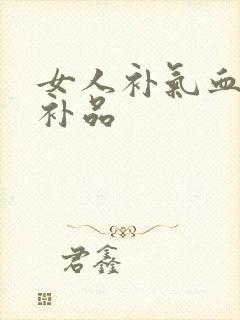 女人补氣血
补品
君鑫